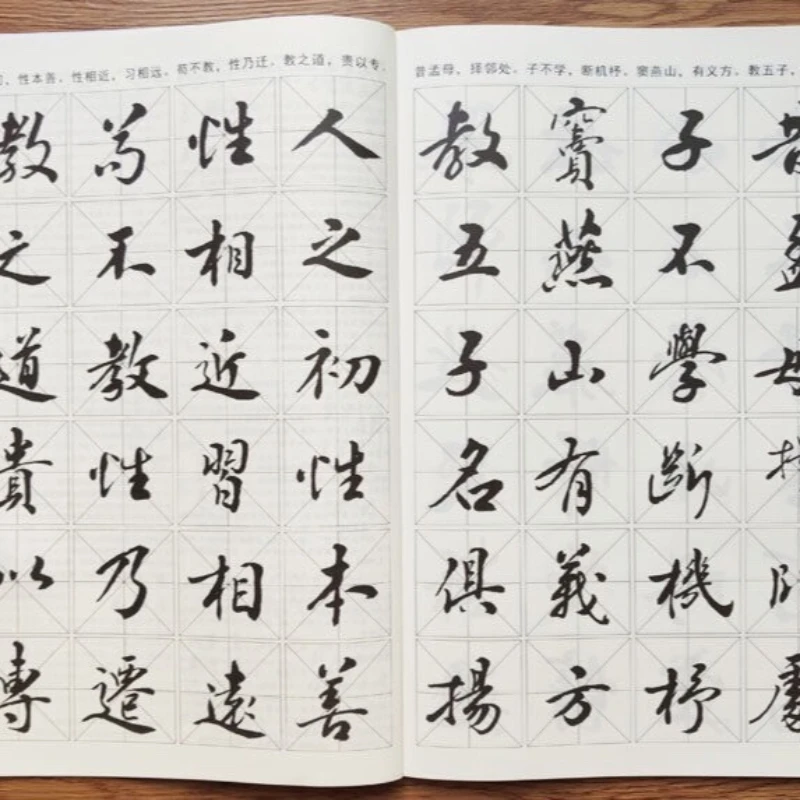 ，性本善。性相近，习相远。苟不教，性乃迁。教之道，贵以专。
人之初性本善
性相近習相遠
苟不教性乃遷
教之道貴以專
昔孟母，择邻处。子不学，断机杼。窦燕山，有义方。教五子，
昔孟母擇鄰處
子不學斷機杼
竇燕山有義方
教五子名俱揚